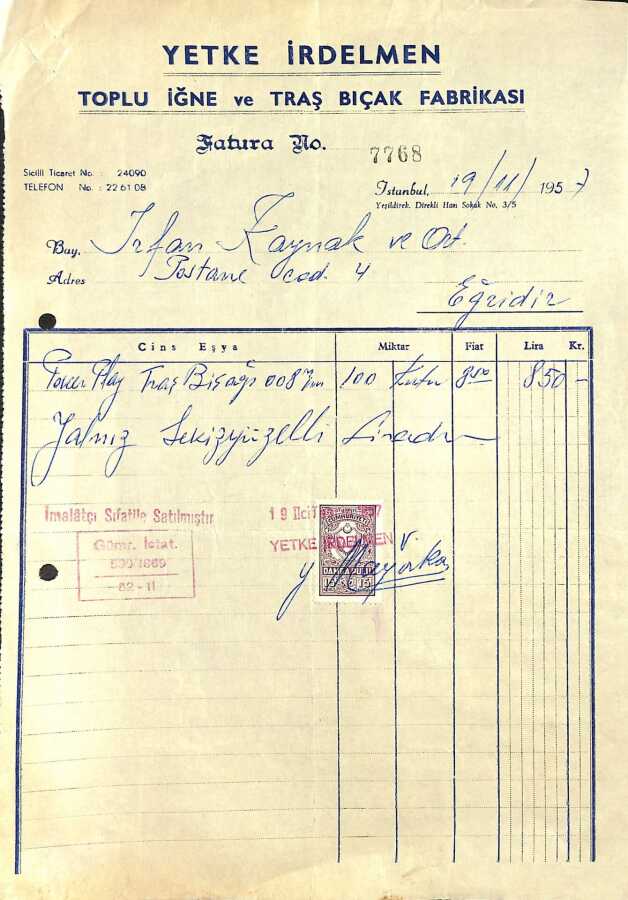 YETKE İRDELMEN
TOPLU İĞNE ve TRAŞ BIÇAK FABRİKASI
Fatura No. 7768
Sicilli Ticaret No. : 24090
TELEFON No. : 22 61 08
İstanbul, 19/11/1957
Yeşildirek. Direkli Han Sokak No. 3/5
Bay. İrfan Kaynak ve Ort.
Adres Postane cad. 4
Eğridir
Cins Eşya Miktar Fiat Lira Kr.
Traş Bıçağı 008 100 Kutu 8.50 850 -
Yalnız Sekizyüzelli Liradır
İmalâtçı Sıfatile Satılmıştır
19 57
YETKE İRDELMEN
Gümr. İstat.
82-11
CUMHURİYETİ
DAMGA PULU
15 15